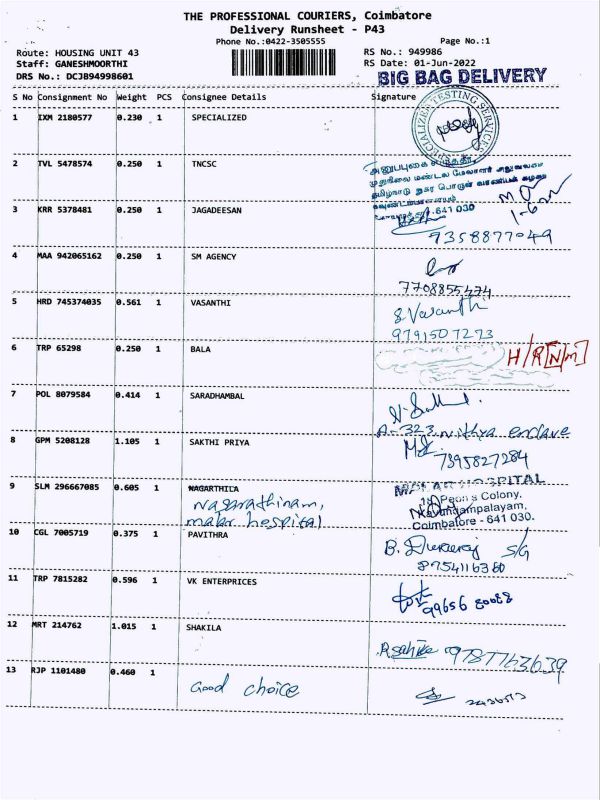 THE PROFESSIONAL COURIERS, Coimbatore
Delivery Runsheet - P43
Phone No.:0422-3505555
Page No.:1
Route: HOUSING UNIT 43
RS No.: 949986
Staff: GANESHMOORTHI
RS Date: 01-Jun-2022
DRS No.: DCJB94998601
BIG BAG DELIVERY
S No Consignment No Weight PCS Consignee Details Signature
1 IXM 2180577 0.230 1 SPECIALIZED
SPECIALIZED TESTING SERVICES
2 TVL 5478574 0.250 1 TNCSC
மண்டல மேலாளர் அலுவலகம்
தமிழ்நாடு நுகர் பொருள் வாணிபக் கழகம்
641 030
3 KRR 5378481 0.250 1 JAGADEESAN
7358877049
4 MAA 942065162 0.250 1 SM AGENCY
7708855474
5 HRD 745374035 0.561 1 VASANTHI
S. Vasanthi
9791507273
6 TRP 65298 0.250 1 BALA
H/R[N/M]
7 POL 8079584 0.414 1 SARADHAMBAL
A-323, nithya enclave
8 GPM 5208128 1.105 1 SAKTHI PRIYA
7395827284
9 SLM 296667085 0.605 1 NAGARTHILA
Nagarathinam,
malar hospital
HOSPITAL
Colony.
Kavundampalayam,
Coimbatore - 641 030.
10 CGL 7005719 0.375 1 PAVITHRA
8754116360
11 TRP 7815282 0.596 1 VK ENTERPRICES
99656 80088
12 MRT 214762 1.015 1 SHAKILA
9787763639
13 RJP 1101480 0.460 1
Good choice